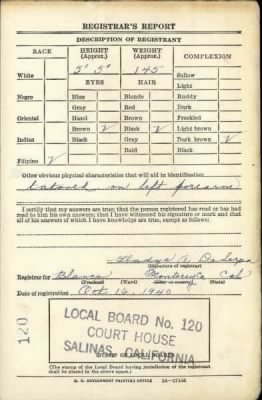 REGISTRAR'S REPORT
DESCRIPTION OF REGISTRANT
RACE HEIGHT (Approx.) WEIGHT (Approx.) COMPLEXION
5' 5" 145
White Sallow
EYES HAIR Light
Negro Blue Blonde Ruddy
Gray Red Dark
Oriental Hazel Brown Freckled
Brown ✓ Black ✓ Light brown
Indian Black Gray Dark brown ✓
Bald Black
Filipino ✓
Other obvious physical characteristics that will aid in identification
tatooed on left forearm
I certify that my answers are true; that the person registered has read or has had
read to him his own answers; that I have witnessed his signature or mark and that
all of his answers of which I have knowledge are true, except as follows:
Gladys A.
(Signature of registrar)
Registrar for Blanco Monterey Cal
(Precinct) (Ward) (State)
Date of registration Oct. 16, 1940
120
LOCAL BOARD No. 120
COURT HOUSE
SALINAS, CALIFORNIA
(STAMP OF LOCAL BOARD)
(The stamp of the Local Board having jurisdiction of the registrant
shall be placed in the above space.)
U. S. GOVERNMENT PRINTING OFFICE